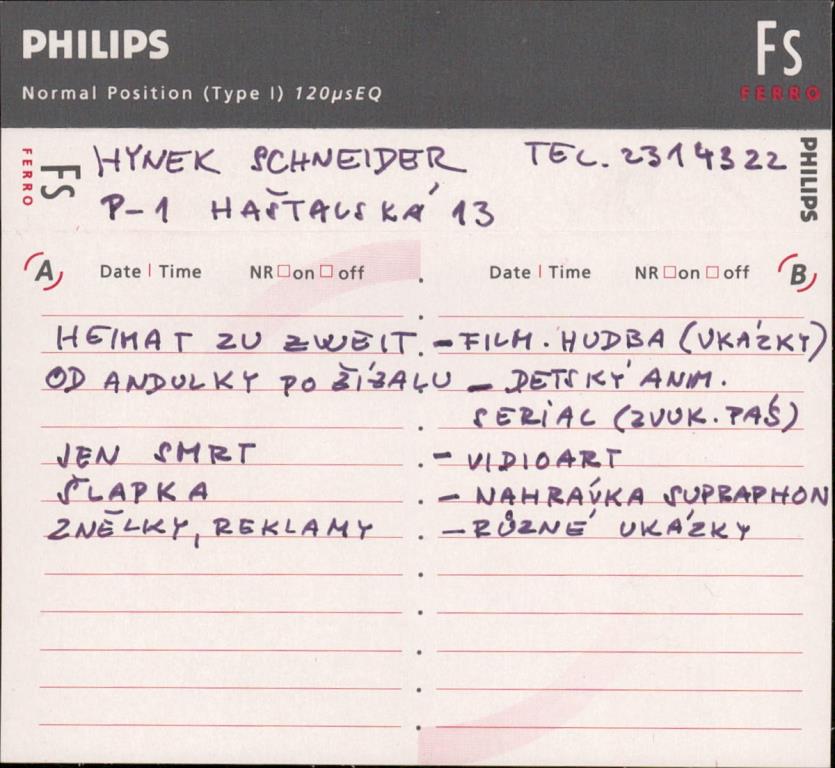 PHILIPS
Fs
Normal Position (Type I) 120µsEQ
FERRO
FERRO Fs HYNEK SCHNEIDER TEL. 2314322 PHILIPS
P-1 HAŠTALSKÁ 13
A Date | Time NR on off Date | Time NR on off B
HEIMAT ZU ZWEIT - FILM. HUDBA (UKÁZKY)
OD ANDULKY PO ŽÍŽALU - DETSKÝ ANIM.
SERIAL (ZVUK. PAŠ)
JEN SMRT - VIDIOART
ŠLAPKA - NAHRÁVKA SUPRAPHON
ZNĚLKY, REKLAMY - RŮZNÉ UKÁZKY